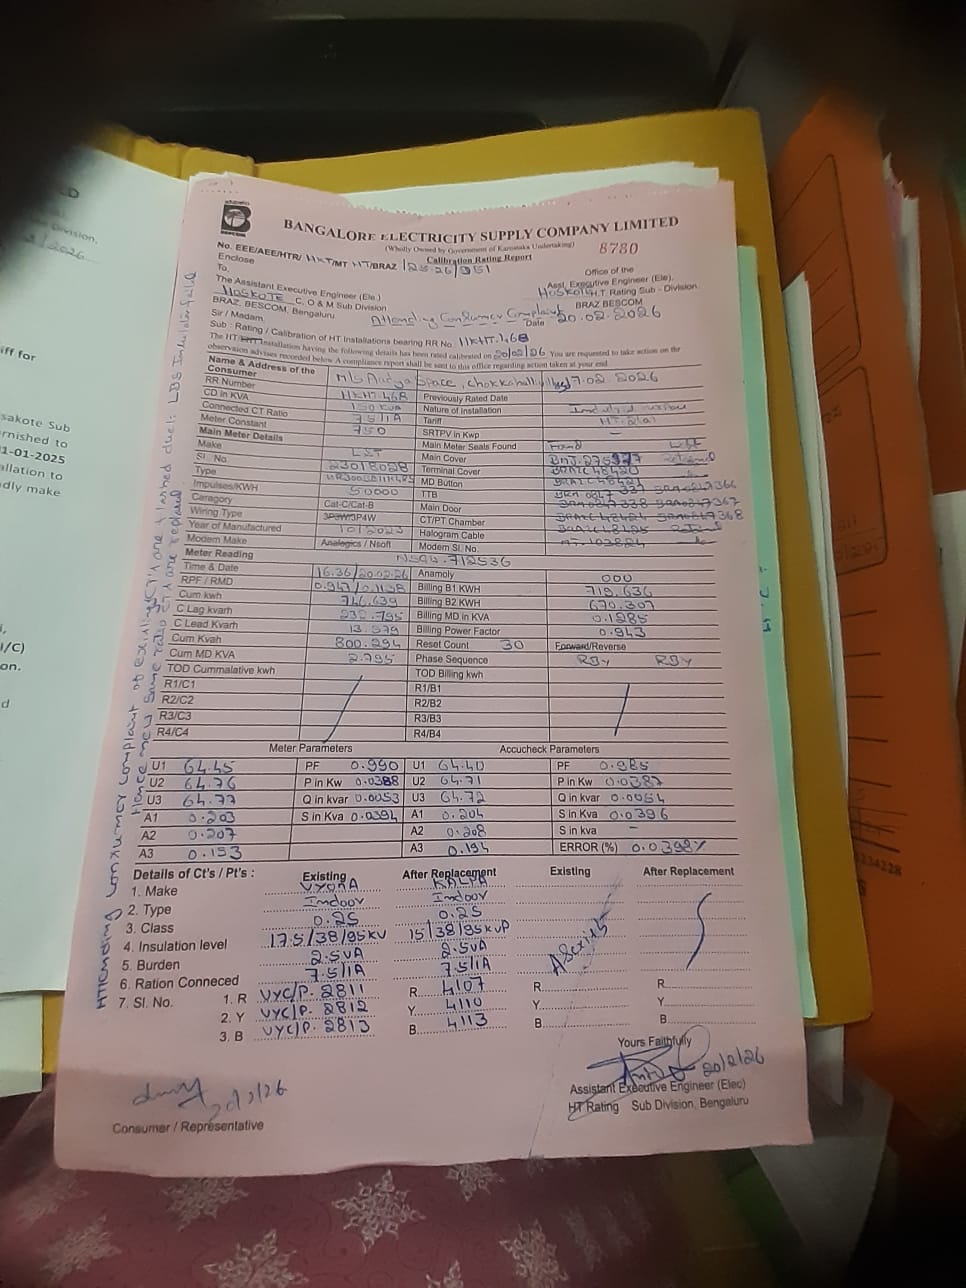 BANGALORE ELECTRICITY SUPPLY COMPANY LIMITED
(Wholly Owned by Government of Karnataka Undertaking)
8780
Calibration Rating Report
No. EEE/AEE/HTR/ HKT/MT HT/BRAZ /25-26/951
Enclose
To,
The Assistant Executive Engineer (Ele.)
HOSKOTE C, O & M Sub Division
BRAZ, BESCOM, Bengaluru
Office of the
Asst. Executive Engineer (Ele).
Hoskote H.T. Rating Sub - Division
BRAZ BESCOM
Date 20.02.2026
Attending Consumer Complaint
Sir / Madam,
Sub : Rating / Calibration of HT Installations bearing RR No. HKHT.468
The HT Installation having the following details has been rated calibrated on 20/02/26 You are requested to take action on the
observation advises recorded below A compliance report shall be sent to this office regarding action taken at your end
Name & Address of the Consumer M/s Aadya Space, Chokkahalli
RR Number HKHT.468 Previously Rated Date 17.02.2026
CD in KVA 150 KVA Nature of Installation
Connected CT Ratio 7.5/1A Tariff
Meter Constant 750 SRTPV in Kwp –
Main Meter Details Main Meter Seals Found Found Left
Make L&T Main Cover
Sl. No. 23018028 Terminal Cover
Type MD Button
Impulses/KWH 50000 TTB
Caragory Cat-C/Cat-B Main Door
Wiring Type 3P3W/3P4W CT/PT Chamber
Year of Manufactured 10/2023 Halogram Cable
Modem Make Analogics / Nsoft Modem Sl. No.
Meter Reading
Time & Date 16.36/20.02.26 Anamoly 000
RPF / RMD 0.947/0.1138 Billing B1 KWH 719.636
Cum kwh 746.639 Billing B2 KWH 670.307
C Lag kvarh 232.795 Billing MD in KVA 0.1285
C Lead Kvarh 13.579 Billing Power Factor 0.943
Cum Kvah 800.294 Reset Count 30 Forward/Reverse
Cum MD KVA 2.795 Phase Sequence RBY RBY
TOD Cummalative kwh TOD Billing kwh
R1/C1 R1/B1
R2/C2 R2/B2
R3/C3 R3/B3
R4/C4 R4/B4
Meter Parameters Accucheck Parameters
U1 64.45 PF 0.990 U1 64.40 PF 0.985
U2 64.76 P in Kw 0.0388 U2 64.71 P in Kw 0.0387
U3 64.77 Q in kvar 0.0053 U3 64.72 Q in kvar 0.0054
A1 0.203 S in Kva 0.0394 A1 0.204 S in Kva 0.0396
A2 0.207 A2 0.208 S in kva –
A3 0.153 A3 0.154 ERROR (%) 0.0398%
Details of Ct's / Pt's : Existing After Replacement Existing After Replacement
1. Make VYONA KALPA
2. Type Indoor Indoor
3. Class 0.2S 0.2S
4. Insulation level 17.5/38/95KV 15/38/95KVP
5. Burden 2.5VA 2.5VA
6. Ration Conneced 7.5/1A 7.5/1A
7. Sl. No. 1. R VYC/P. 2811 R. 4107 R. R.
2. Y VYC/P. 2812 Y. 4110 Y. Y.
3. B VYC/P. 2813 B. 4113 B. B.
Yours Faithfully
20/2/26
Assistant Executive Engineer (Elec)
HT Rating Sub Division, Bengaluru
Consumer / Representative